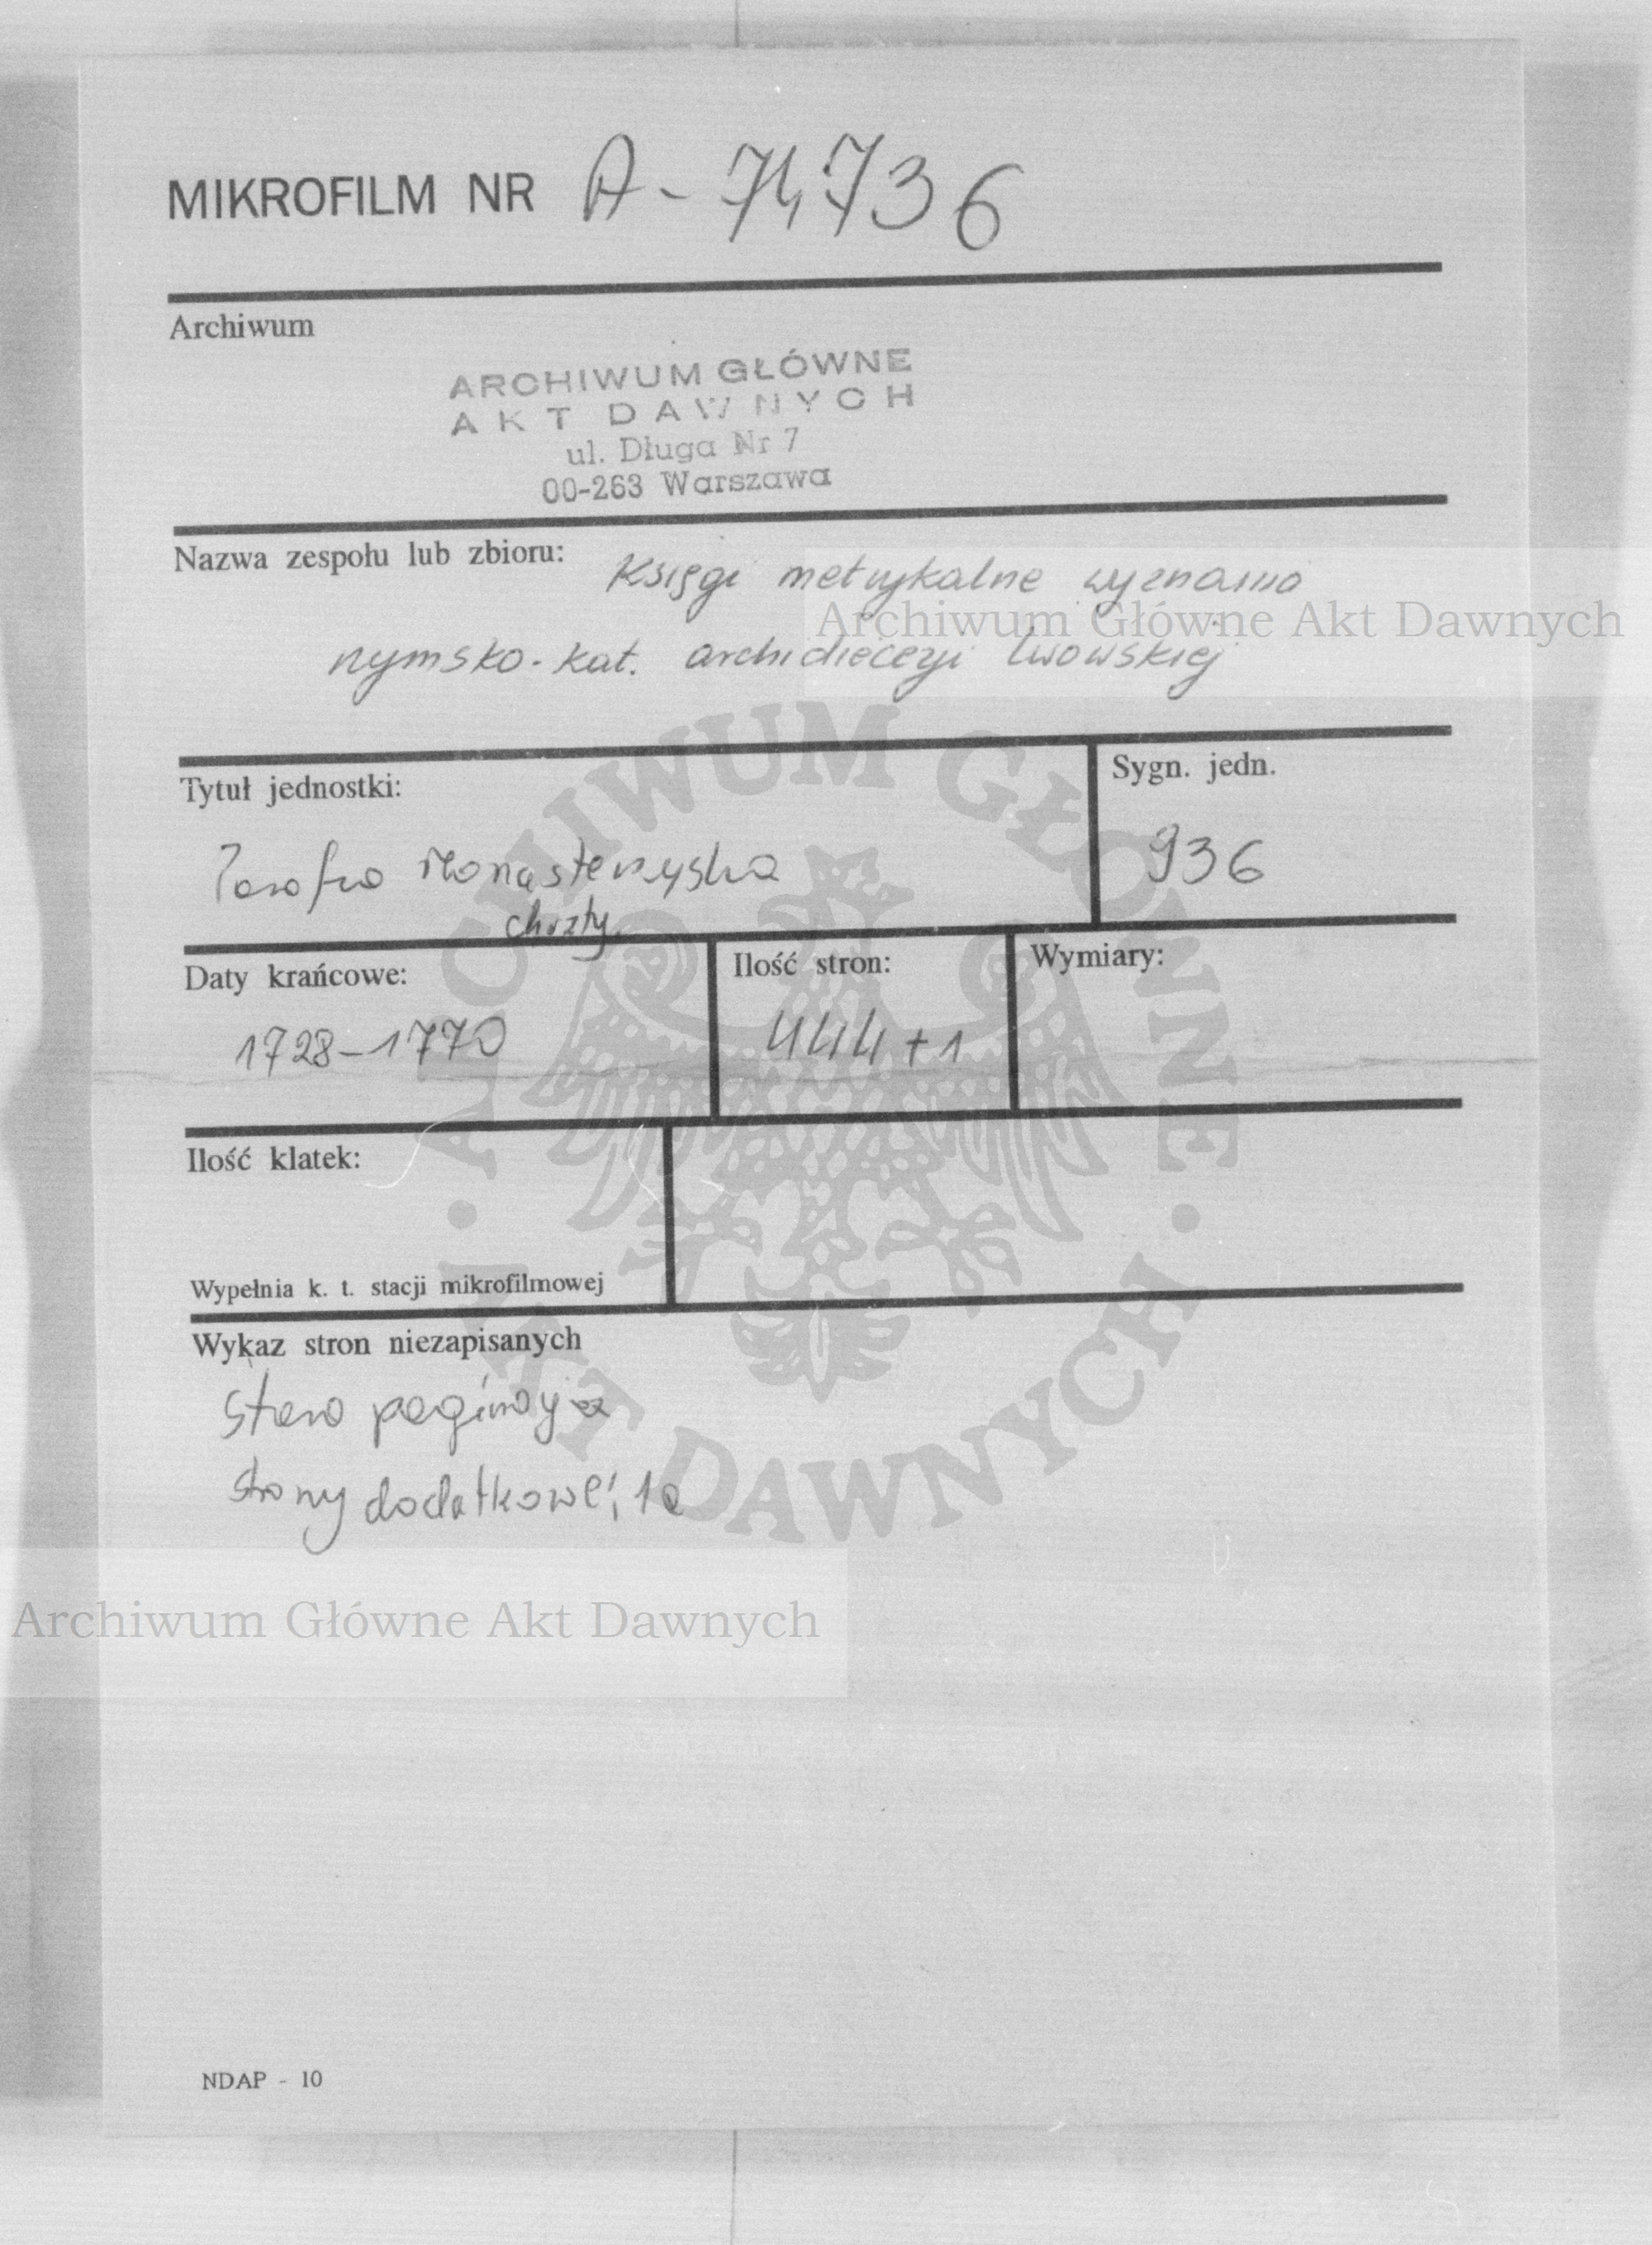 MIKROFILM NR A-74736
Archiwum
ARCHIWUM GŁÓWNE
AKT DAWNYCH
ul. Długa Nr 7
00-263 Warszawa
Nazwa zespołu lub zbioru: Księgi metrykalne wyznania
Archiwum Główne Akt Dawnych
rzymsko-kat. archidiecezji lwowskiej
Tytuł jednostki:
Sygn. jedn.
Parafia Monasterzyska
936
chrzty
Daty krańcowe:
Ilość stron:
Wymiary:
1728-1770
444+1
Ilość klatek:
Wypełnia k. t. stacji mikrofilmowej
Wykaz stron niezapisanych
stara paginacja
strony dodatkowe: 1a
ARCHIWUM GŁÓWNE AKT DAWNYCH
Archiwum Główne Akt Dawnych
NDAP - 10